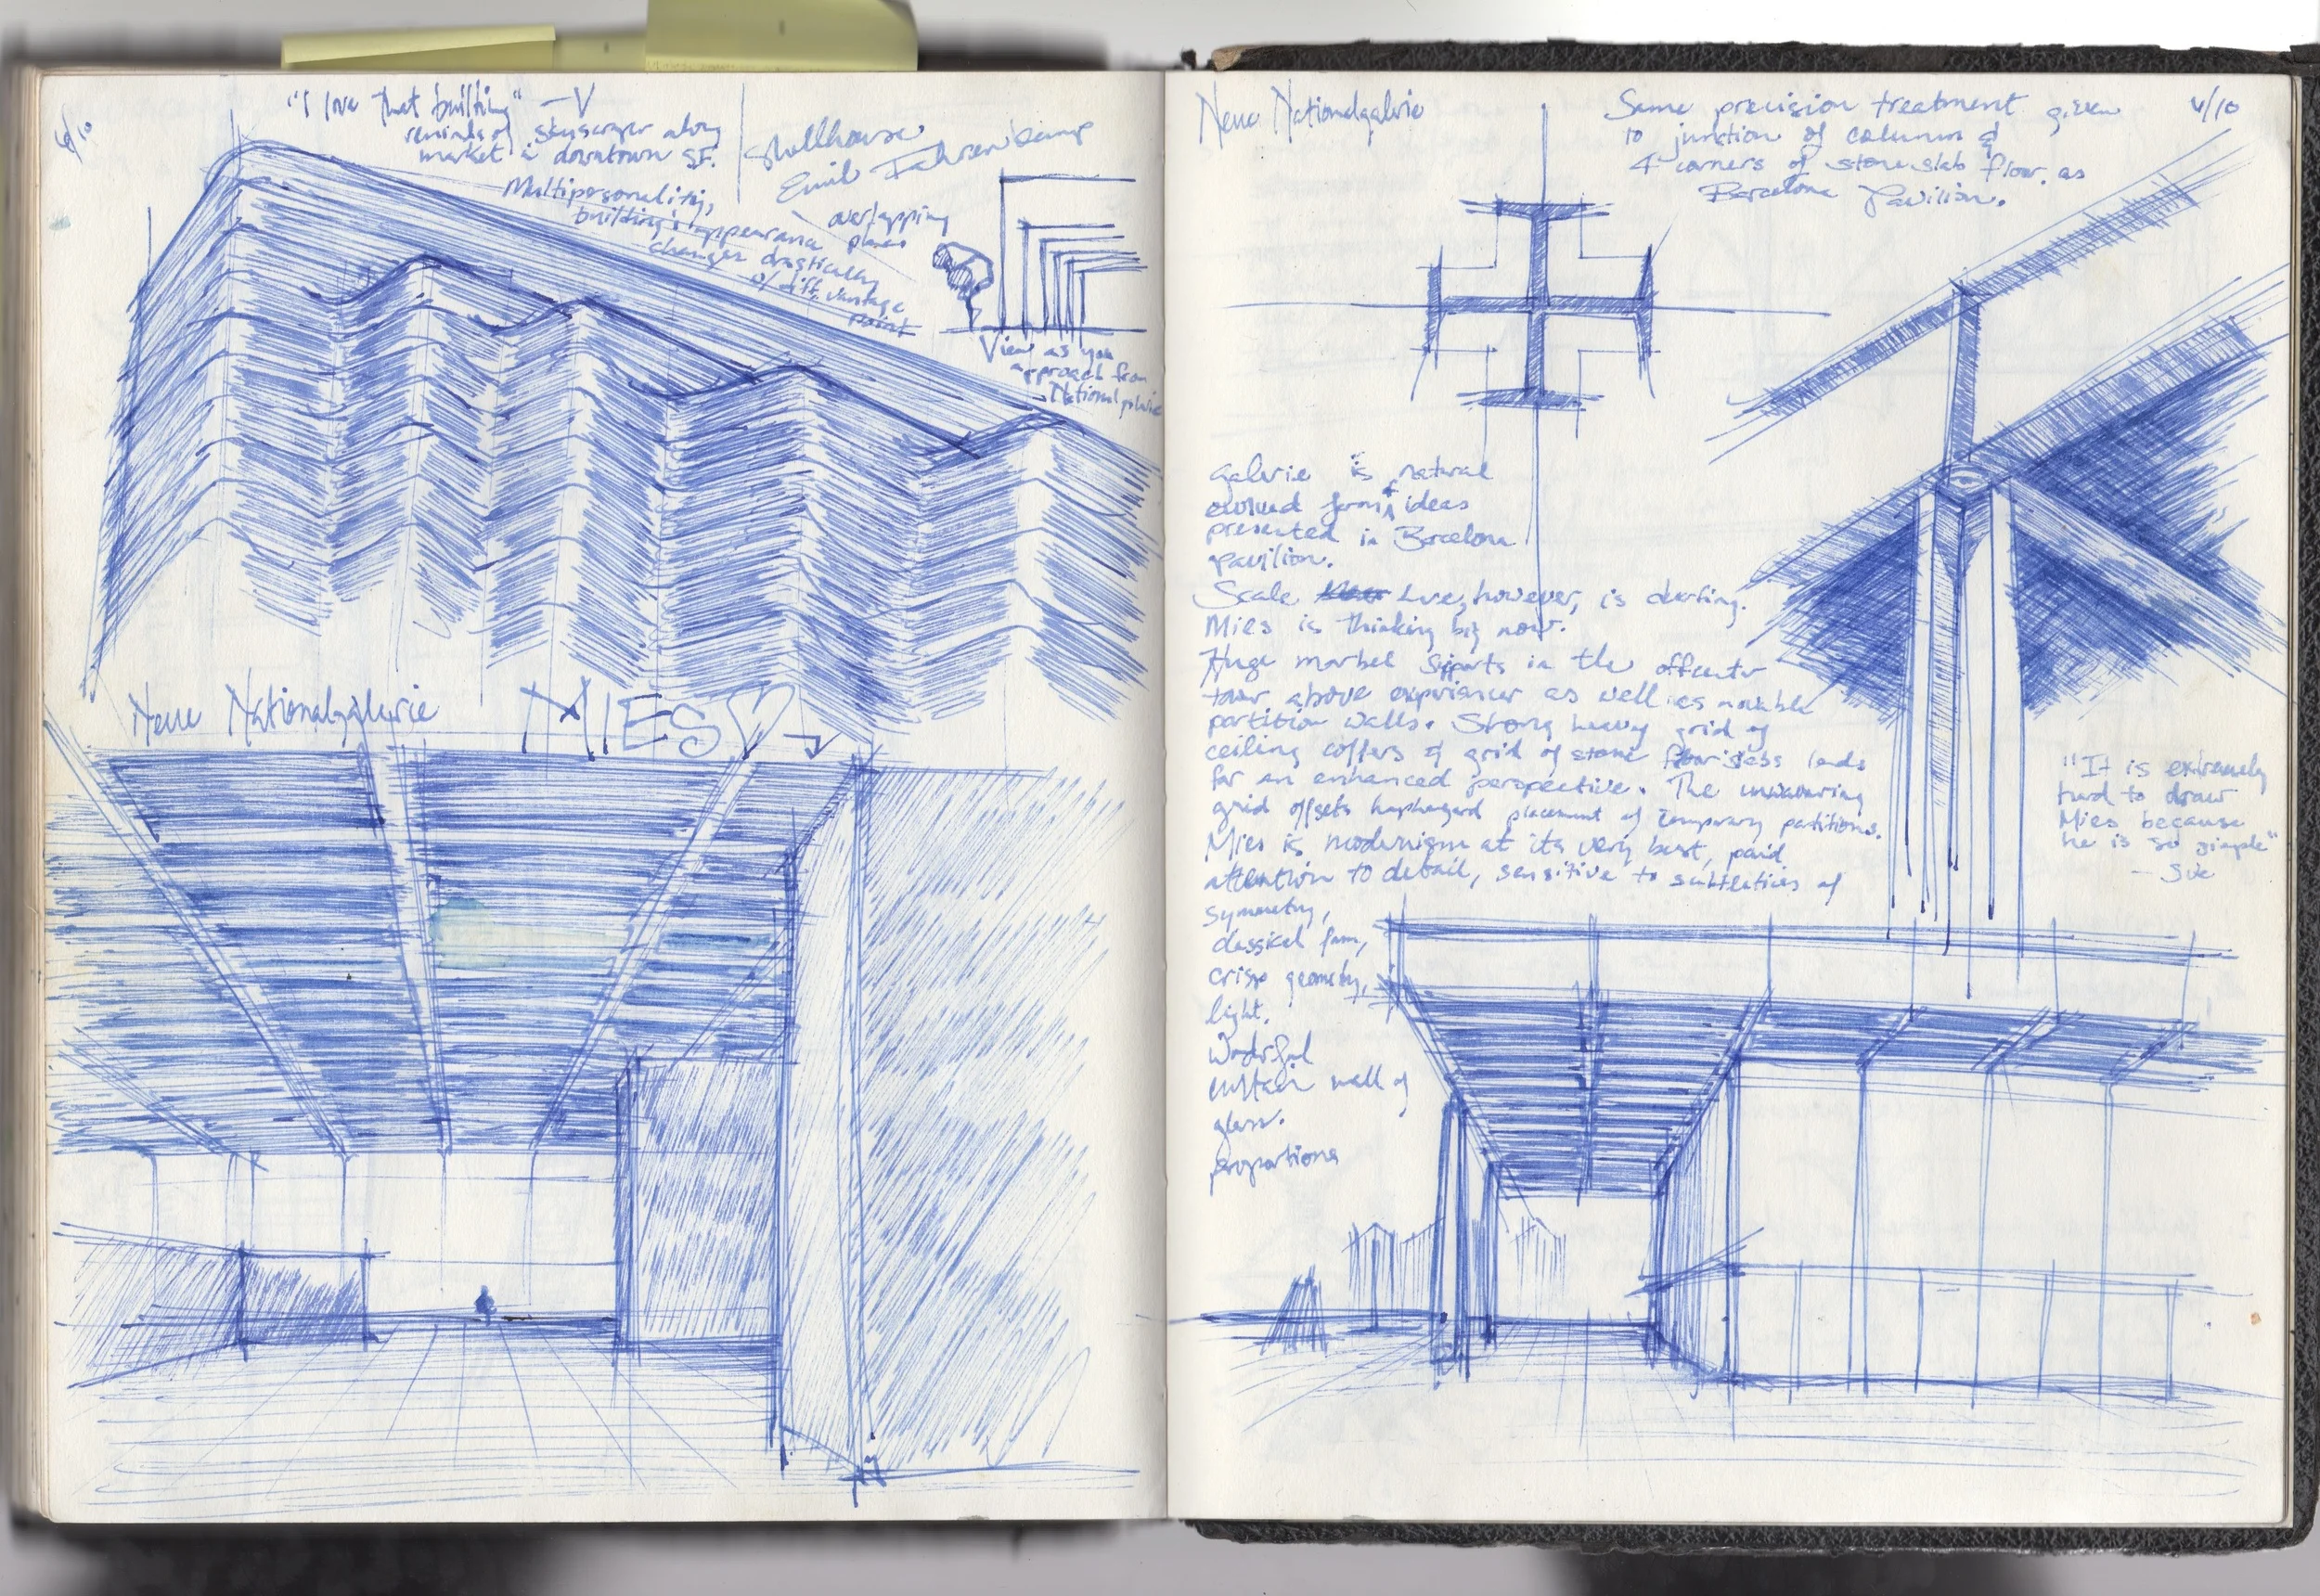 6/10
"I love that building" —V
reminds of skyscraper along
market in downtown SF.
Multipersonality,
building's appearance
changes drastically
w/ diff. vantage
point
Shellhouse
Emil Fahrenkamp
overlapping
planes
View as you
approach from
Nationalgalerie
Neue Nationalgalerie
MIES
Neue Nationalgalerie
Same precision treatment given
to junction of column &
4 corners of stone slab floor, as
Barcelona Pavilion.
6/10
Galerie is natural
evolved form ideas
presented in Barcelona
pavilion.
Scale here, however, is
Mies is thinking big now.
Huge marbel supports in the
above experience as well as movable
partition walls. Strong heavy grid of
ceiling coffers & grid of stone floor slabs lends
for an enhanced perspective. The unwavering
grid offsets haphazard placement of temporary partitions.
Mies is modernism at its very best, paid
attention to detail, sensitive to subtleties of
symmetry,
classical form,
crisp geometry,
light.
Wonderful
curtain wall of
glass.
proportions
"It is extremely
hard to draw
Mies because
he is so simple"
— Sue